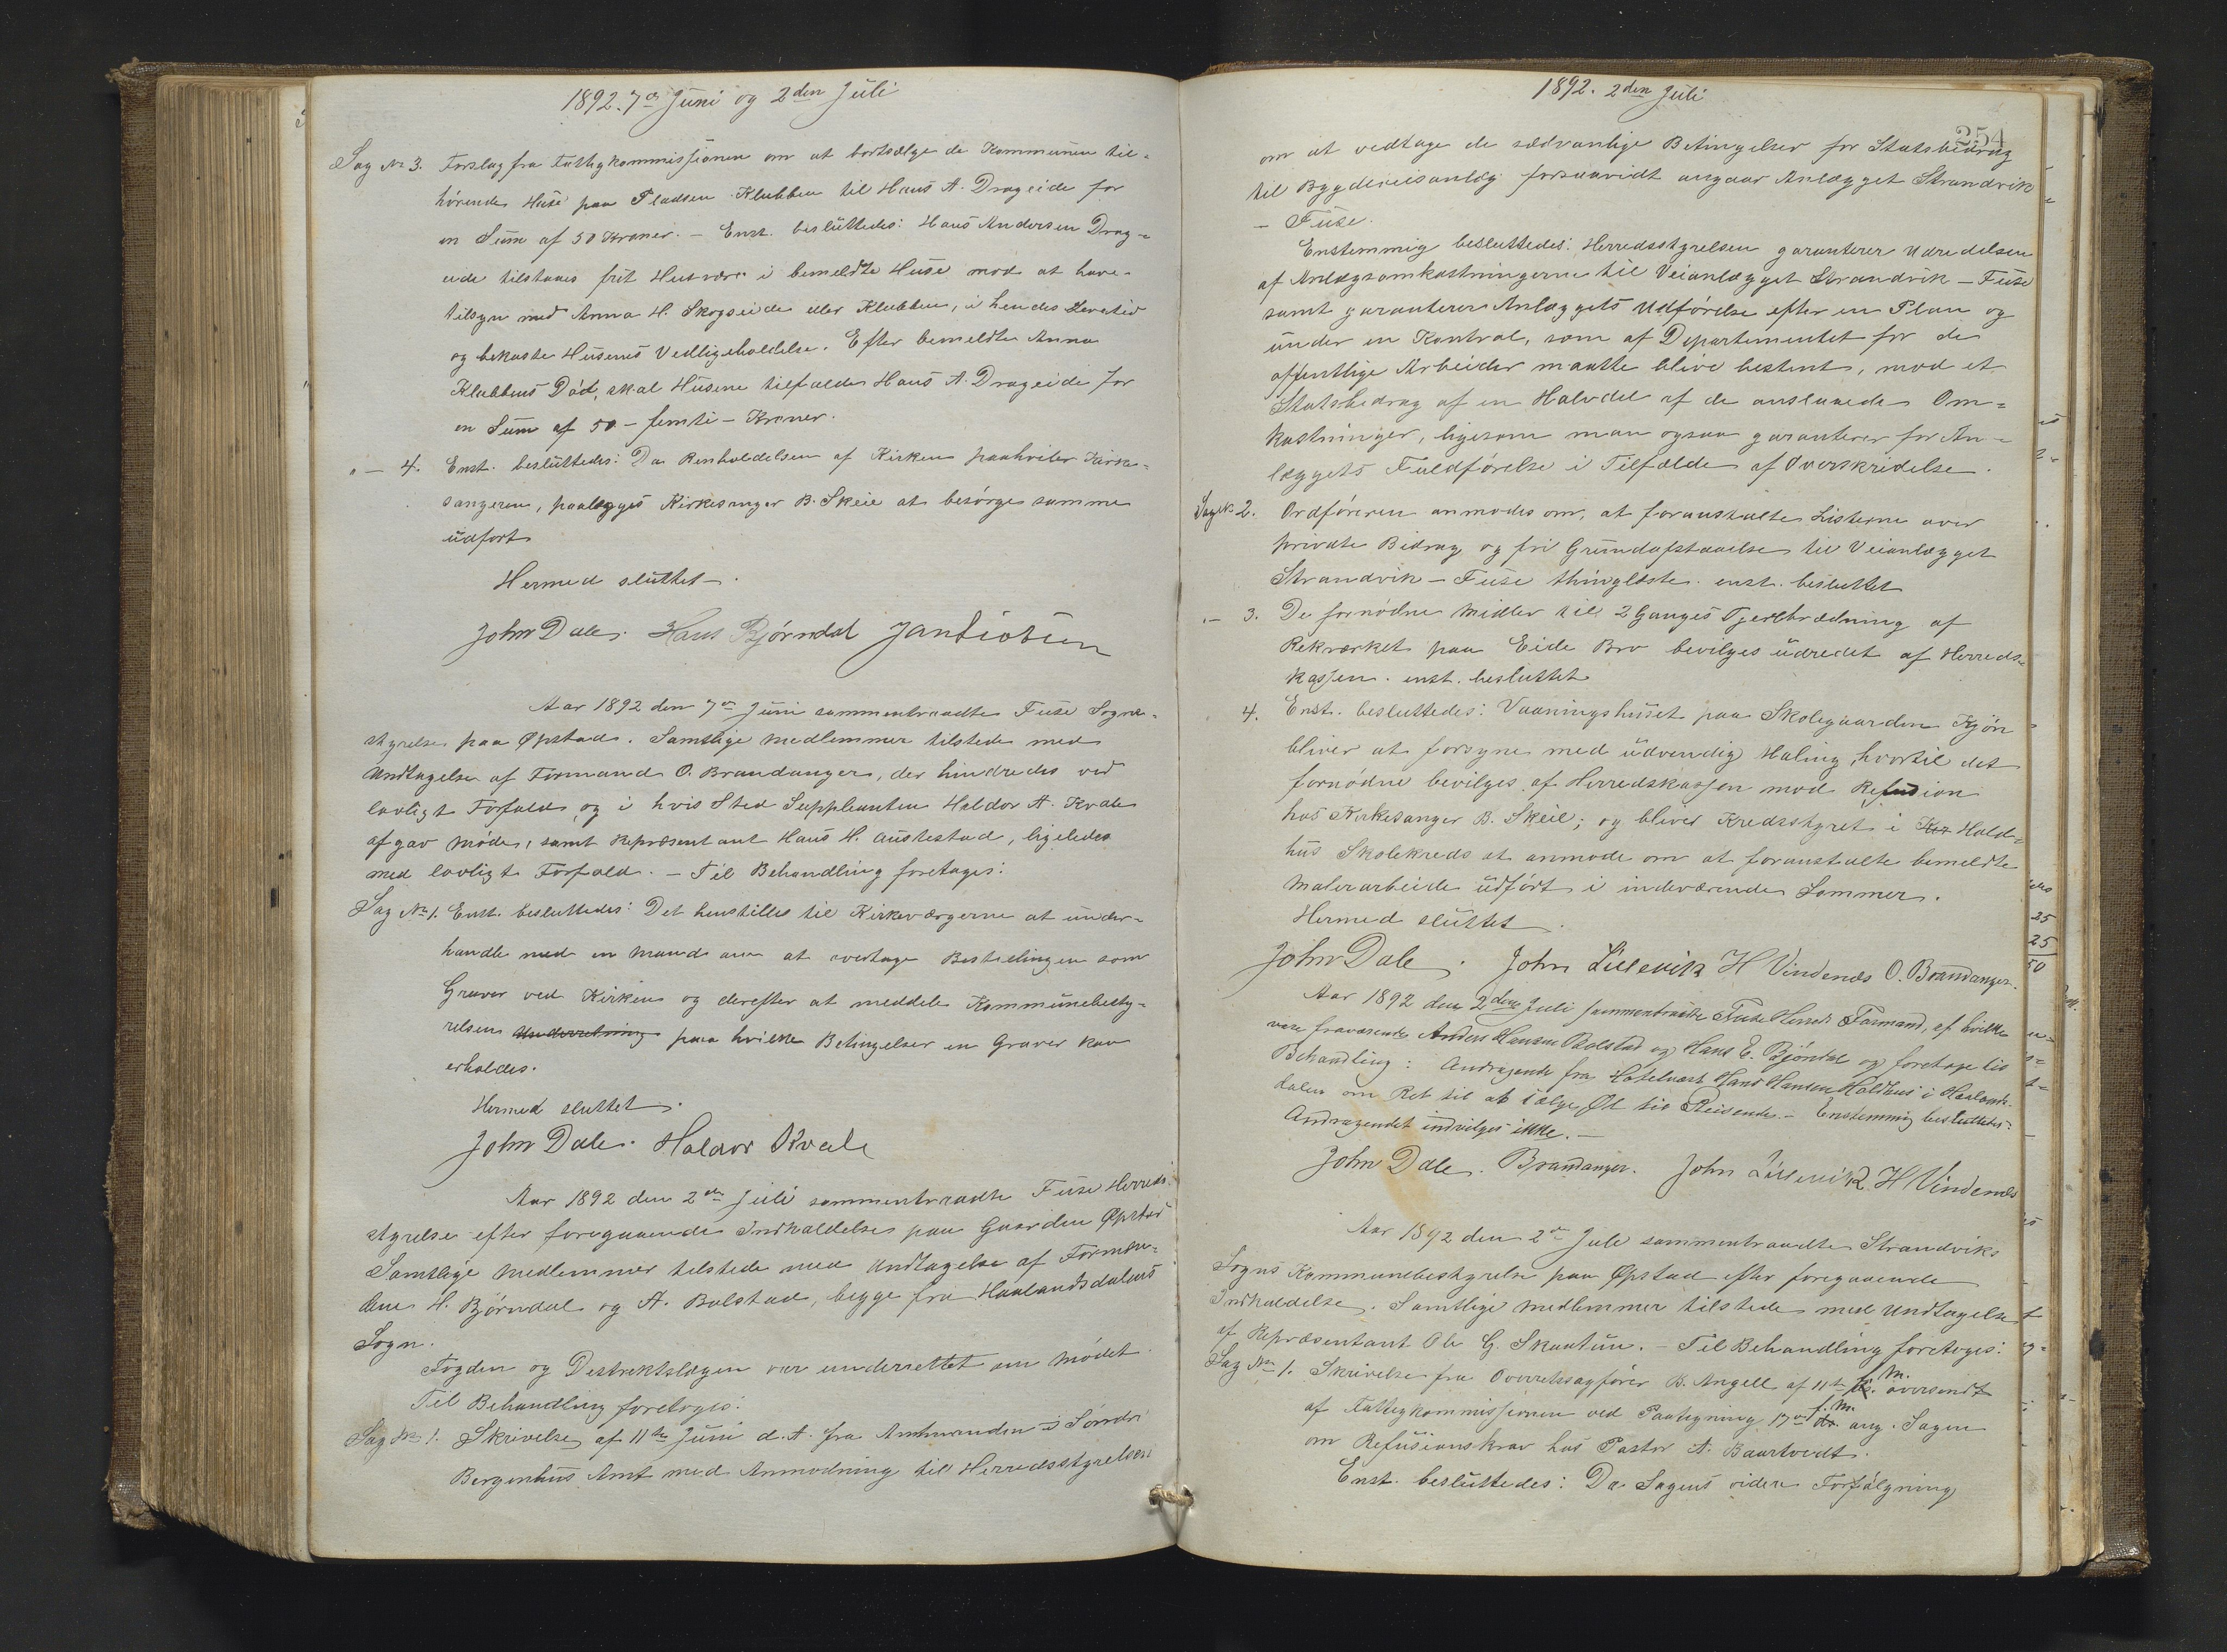 1892. 7de Juni og 2den Juli
Sag No 3. Forslag fra Fattigkommissionen om at bortsælge de Kommunen til-
hørende Huse paa Pladsen Klubben til Hans A. Drageide for
en Sum af 50 Kroner. – Enst. besluttedes: Hans Andersen Drag-
eide tilstaaes frit Husvære i bemeldte Huse mod at have
tilsyn med Anna H. Skogseide eller Klubben, i hendes Levetid
og bekoste Husenes Vedligeholdelse. Efter bemeldte Anna
Klubbens Død, skal Husene tilfalde Hans A. Drageide for
en Sum af 50 – femti – Kroner.
" — 4. Enst. besluttedes: Da Renholdelsen af Kirken paahviler Kirke-
sangeren, paalægges Kirkesanger B. Skeie at besørge samme
udført
Hermed sluttet.
John Dale. Hans Bjørndal
Aar 1892 den 7de Juni sammentraadte Fuse Sogne-
styrelse paa Øpstad. Samtlige Medlemmer tilstede med
Undtagelse af Formand O. Brandanger, der hindredes ved
lovligt Forfald og i hvis Sted Suppleanten Haldor A. Kvale
afgav Møde, samt Repræsentant Hans H. Austestad, ligeledes
med lovligt Forfald. – Til Behandling foretages:
Sag No 1. Enst. besluttedes: Det henstilles til Kirkeværgerne at under-
handle med en Mand om at overtage Bestillingen som
Graver ved Kirken og derefter at meddele Kommunebesty-
relsen Underretning paa hvilke Betingelser en Graver kan
erholdes.
Hermed sluttet.
John Dale. Haldor Kvale
Aar 1892 den 2den Juli sammentraadte Fuse Herreds-
styrelse efter foregaaende Indkaldelse paa Gaarden Øpstad
Samtlige Medlemmer tilstede med Undtagelse af Formæn-
dene H. Bjørndal og A. Bolstad, begge fra Haalandsdalens
Sogn.
Fogden og Destriktslægen var underrettet om Mødet.
Til Behandling foretoges:
Sag No 1. Skrivelse af 11te Juni d.A. fra Amtmanden i Søndre
Bergenhus Amt med Anmodning til Herredsstyrelsen
1892. 2den Juli
254
om at vedtage de sædvanlige Betingelser for Statsbidrag
til Bygdeveisanlæg forsaavidt angaar Anlægget Strandvik
– Fuse.
Enstemmig besluttedes: Herredsstyrelsen garanterer Udredelsen
af Anlægsomkostningerne til Veianlægget Strandvik – Fuse
samt garanterer Anlæggets Udførelse efter en Plan og
under en Kontrol, som af Departementet for de
offentlige Arbeider maatte blive bestemt, mod et
Statsbidrag af en Halvdel af de anslaaede Om-
kostninger, ligesom man ogsaa garanterer for An-
læggets Fuldførelse i Tilfælde af Overskridelse.
Sag No 2. Ordføreren anmodes om, at foranstalte Listerne over
private Bidrag og fri Grundafstaaelse til Veianlægget
Strandvik – Fuse thinglæste. enst. besluttet
" — 3. De fornødne Midler til 2 Ganges Tjerebrædning af
Rekværket paa Eide Bro bevilges udredet af Herreds-
kassen. enst. besluttet
4. Enst. besluttedes: Vaaningshuset paa Skolegaarden Kjøn
bliver at forsyne med udvendig Maling, hvortil det
fornødne bevilges af Herredskassen mod Refusion
hos Kirkesanger B. Skeie; og bliver Kredsstyret i Ker Hold-
hus Skolekreds at anmode om at foranstalte bemeldte
Malerarbeide udført i indeværende Sommer.
Hermed sluttet.
John Dale. John Lillevik H Vindenæs O. Brandanger.
Aar 1892 den 2den Juli sammentraadte Fuse Herreds Formænd, af hvilke
vare fraværende Anders Hansen Bolstad og Hans E. Bjørndal og foretoges til
Behandling: Andragende fra Hotelvært Hans Hansen Holdhus i Haalands-
dalen om Ret til at sælge Øl til Reisende. – Enstemmig besluttedes:
Andragendet indvilges ikke. —
John Dale. Brandanger. John Lillevik H Vindenæs
Aar 1892 den 2den Juli sammentraadte Strandviks
Sogns Kommunebestyrelse paa Øpstad efter foregaaende
Indkaldelse. Samtlige Medlemmer tilstede med Undtagelse
af Repræsentant Ole G. Skaatun. – Til Behandling foretoges:
Sag No 1. Skrivelse fra Overretssagfører B. Angell af 11te f. M. oversendt
af Fattigkommissionen ved Paategning 17de f. M. ang. Sagen
om Refusionskrav hos Pastor A. Baartvedt.
Enst. besluttedes: Da Sagens videre Forfølgning
25
25
50